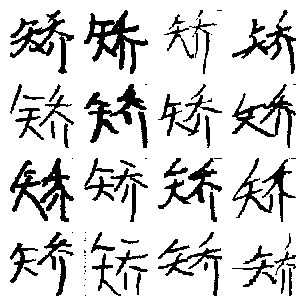 矫矫矫矫
矫矫矫矫
矫矫矫矫
矫矫矫矫